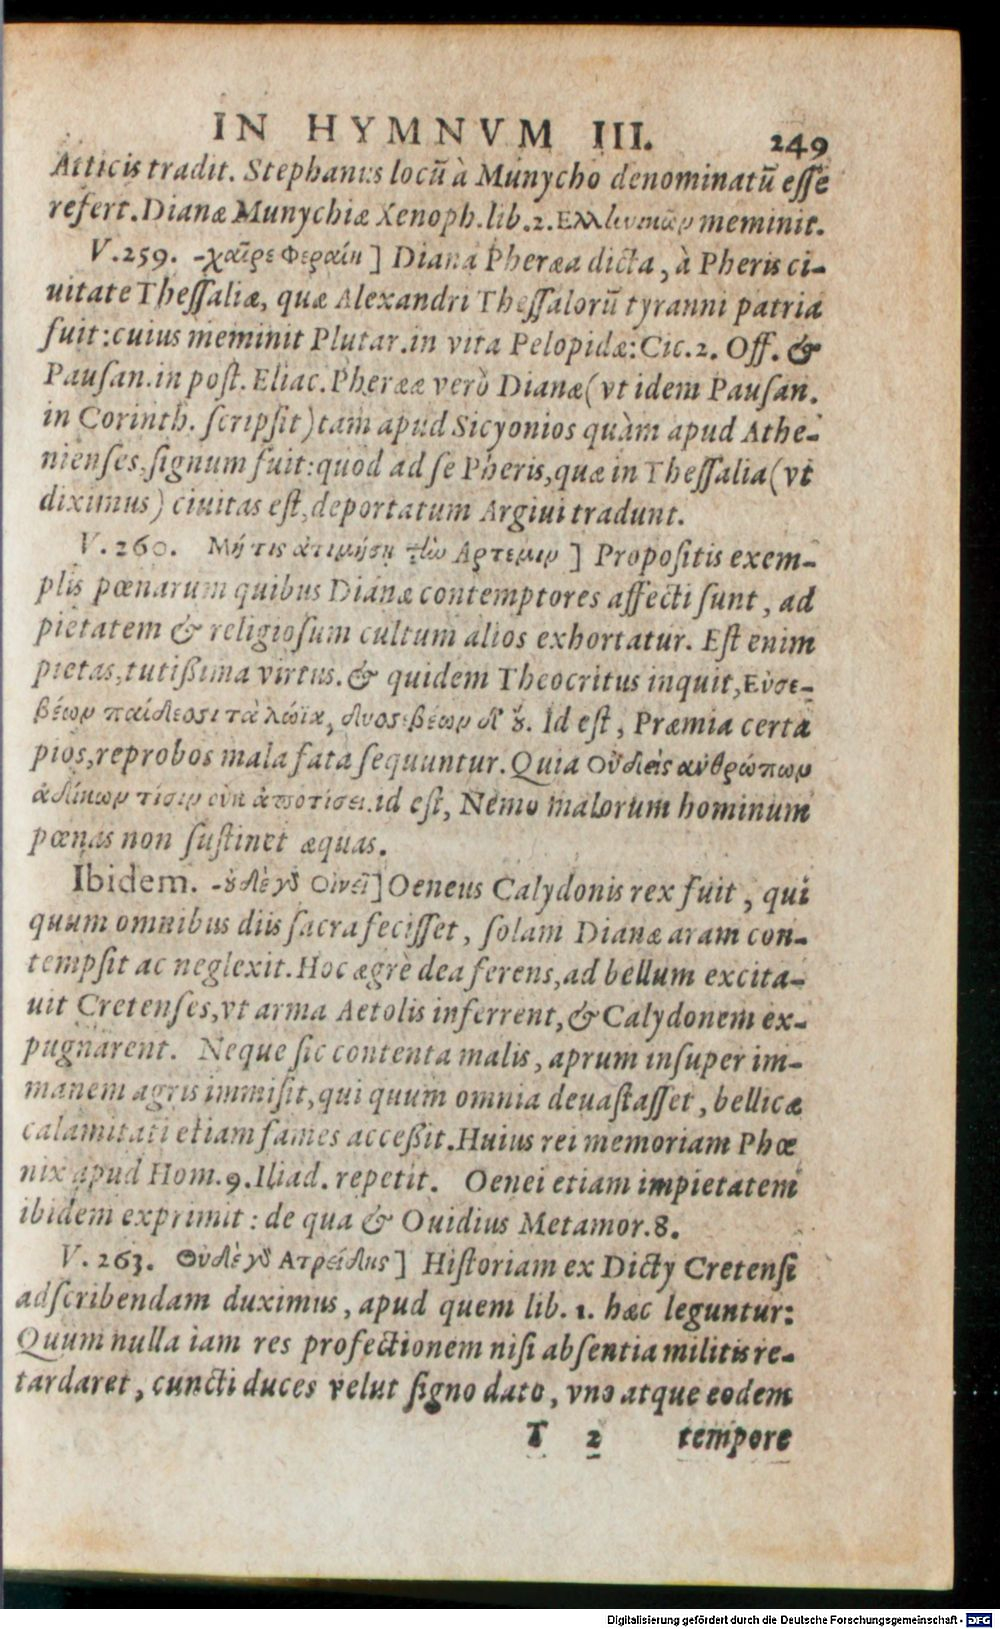 IN HYMNVM III. 249
Atticis tradit. Stephanus locũ à Munycho denominatũ esse
refert. Dianæ Munychiæ Xenoph. lib. 2. Ελλluωικῶμ meminit.
V. 259. -χαῖρε Φεραίη ] Diana Pheræa dicta, à Pheris ci-
uitate Thessaliæ, quæ Alexandri Thessalorũ tyranni patria
fuit: cuius meminit Plutar. in vita Pelopidæ: Cic. 2. Off. &
Pausan. in post. Eliac. Pherææ verò Dianæ (vt idem Pausan.
in Corinth. scripsit) tam apud Sicyonios quàm apud Athe-
nienses, signum fuit: quod ad se Pheris, quæ in Thessalia (vt
diximus) ciuitas est, deportatum Argiui tradunt.
V. 260. Μή τις ἀτιμήσῃ τlὼ Αρτεμιμ ] Propositis exem-
plis pœnarum quibus Dianæ contemptores affecti sunt, ad
pietatem & religiosum cultum alios exhortatur. Est enim
pietas, tutißima virtus. & quidem Theocritus inquit, Εὐσε-
βέωμ παίδεοσι τὰ λώϊα, δυσσεβέωμ δ' ȣ. Id est, Præmia certa
pios, reprobos mala fata sequuntur. Quia Οὐδεὶς ἀνθρώπωμ
ἀδίκωμ τίσιμ οὐκ ἀποτίσει. id est, Nemo malorum hominum
pœnas non sustinet æquas.
Ibidem. -ȣδὲ γδ Οἰνεῖ] Oeneus Calydonis rex fuit, qui
quum omnibus diis sacra fecisset, solam Dianæ aram con-
tempsit ac neglexit. Hoc ægrè dea ferens, ad bellum excita-
uit Cretenses, vt arma Aetolis inferrent, & Calydonem ex-
pugnarent. Neque sic contenta malis, aprum insuper im-
manem agris immisit, qui quum omnia deuastasset, bellicæ
calamitati etiam fames acceßit. Huius rei memoriam Phœ
nix apud Hom. 9. Iliad. repetit. Oenei etiam impietatem
ibidem exprimit: de qua & Ouidius Metamor. 8.
V. 263. Οὐδὲ γδ Ατρείδης ] Historiam ex Dicty Cretensi
adscribendam duximus, apud quem lib. 1. hæc leguntur:
Quum nulla iam res profectionem nisi absentia militis re-
tardaret, cuncti duces velut signo dato, vno atque eodem
T 2 tempore
Digitalisierung gefördert durch die Deutsche Forschungsgemeinschaft - DFG